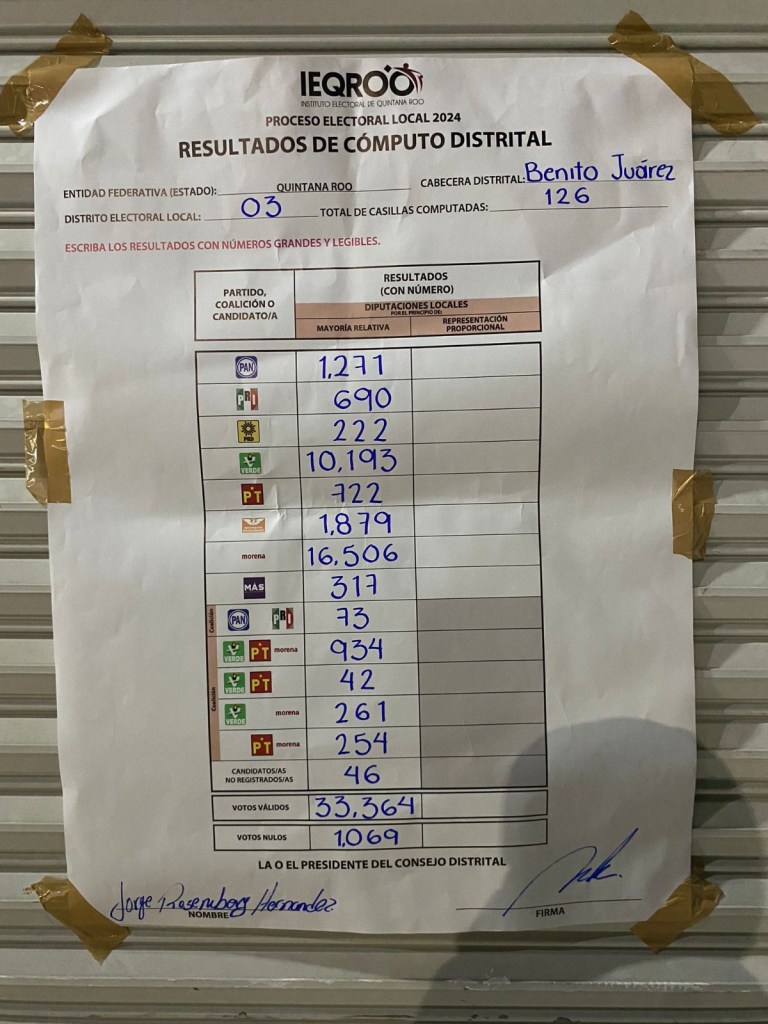 IEQROO
INSTITUTO ELECTORAL DE QUINTANA ROO
PROCESO ELECTORAL LOCAL 2024
RESULTADOS DE CÓMPUTO DISTRITAL
ENTIDAD FEDERATIVA (ESTADO): QUINTANA ROO CABECERA DISTRITAL: Benito Juárez
DISTRITO ELECTORAL LOCAL: 03 TOTAL DE CASILLAS COMPUTADAS: 126
ESCRIBA LOS RESULTADOS CON NÚMEROS GRANDES Y LEGIBLES.
PARTIDO, COALICIÓN O CANDIDATO/A
RESULTADOS (CON NÚMERO)
DIPUTACIONES LOCALES
POR EL PRINCIPIO DE:
MAYORÍA RELATIVA REPRESENTACIÓN PROPORCIONAL
PAN 1,271
PRI 690
PRD 222
VERDE 10,193
PT 722
1,879
morena 16,506
MÁS 317
Coalición PAN PRI 73
VERDE PT morena 934
VERDE PT 42
Coalición VERDE morena 261
PT morena 254
CANDIDATOS/AS NO REGISTRADOS/AS 46
VOTOS VÁLIDOS 33,364
VOTOS NULOS 1,069
LA O EL PRESIDENTE DEL CONSEJO DISTRITAL
Jorge Hernandez
NOMBRE FIRMA